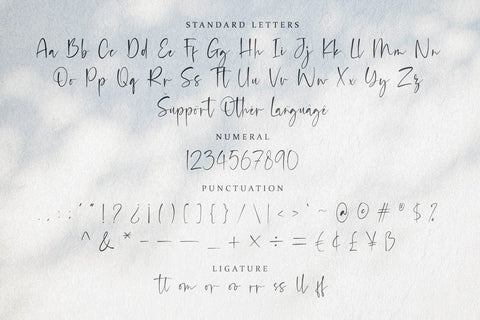 STANDARD LETTERS
Aa Bb Cc Dd Ee Ff Gg Hh Ii Jj Kk Ll Mm Nn
Oo Pp Qq Rr Ss Tt Uu Vv Ww Xx Yy Zz
Support Other Language
NUMERAL
1234567890
PUNCTUATION
. , : ; ' " ! ? ¿ ¡ ( ) [ ] { } / \ | < > ` ~ @ © # ® $ ?
^ & * – — — _ + × ÷ = € ¢ £ ¥ B
LIGATURE
tt om or oo rr ss ll ff